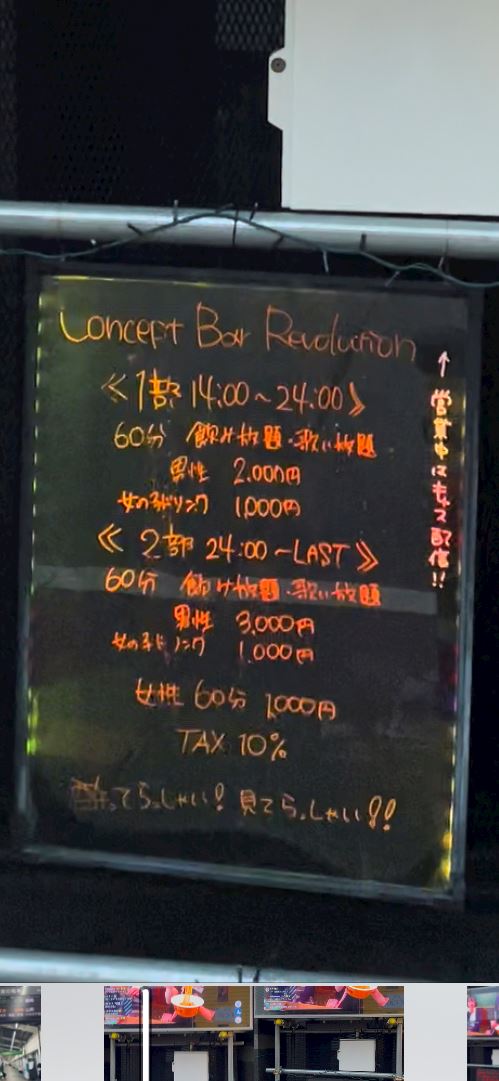 Concept Bar Revolution
《1部 14:00~24:00》
60分 飲み放題・歌い放題
男性 2,000円
女の子ドリンク 1,000円
《2部 24:00~LAST》
60分 飲み放題・歌い放題
男性 3,000円
女の子ドリンク 1,000円
女性 60分 1,000円
TAX 10%
酔ってらっしゃい! 見てらっしゃい!!
↑営業中に
配信!!